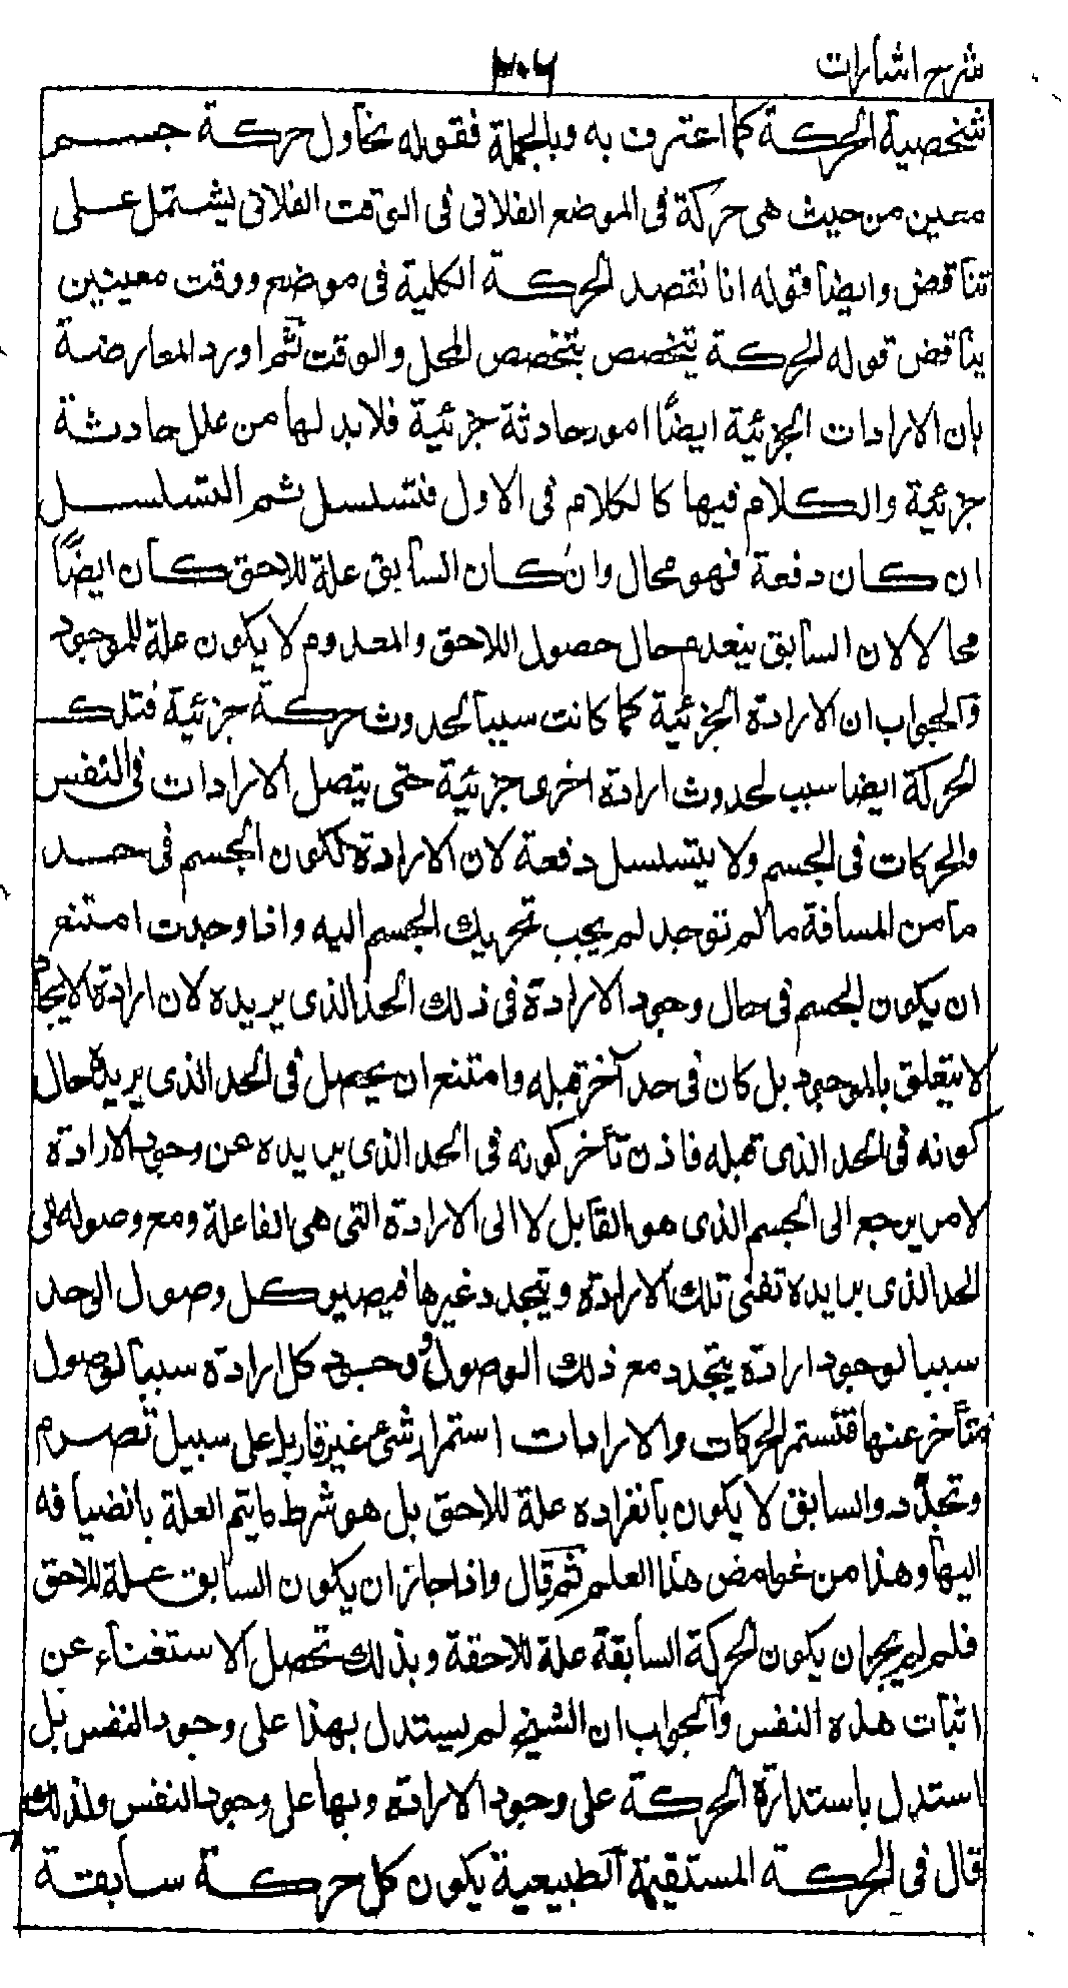 شرح اشارات
۲۰۶
شخصية الحركة كما اعترف به وبالجملة فقوله نحاول حركة جسم
معين من حيث هى حركة فى الموضع الفلانى فى الوقت الفلانى يشتمل على
تناقض وايضا فقوله انا نقصد الحركة الكلية فى موضع ووقت معينين
يناقض قوله الحركة يتخصص بتخصص المحل والوقت ثم اورد المعارضة
بان الارادات الجزئية ايضًا امور حادثة جزئية فلا بد لها من علل حادثة
جزئية والكلام فيها كالكلام فى الاول فتسلسل ثم التسلسل
ان كان دفعة فهو محال وان كان السابق علة للاحق كان ايضًا
محالا لان السابق ينعدم حال حصول اللاحق والمعدوم لا يكون علة للموجود
والجواب ان الارادة الجزئية كما كانت سببا لحدوث حركة جزئية فتلك
الحركة ايضا سبب لحدوث ارادة اخرى جزئية حتى يتصل الارادات فى النفس
والحركات فى الجسم ولا يتسلسل دفعة لان الارادة لكون الجسم فى حد
ما من المسافة ما لم توجد لم يجب تحريك الجسم اليه واذا وجدت امتنع
ان يكون الجسم فى حال وجود الارادة فى ذلك الحد الذى يريده لان ارادة الايجاد
لا يتعلق بالموجود بل كان فى حد آخر قبله وامتنع ان يحصل فى الحد الذى يريده حال
كونه فى الحد الذى قبله فاذن تأخر كونه فى الحد الذى يريده عن وجود الارادة
لامر يرجع الى الجسم الذى هو القابل لا الى الارادة التى هى الفاعلة ومع وصوله فى
الحد الذى يريده تفنى تلك الارادة ويتجدد غيرها فيصير كل وصول الى حد
سببا لوجود ارادة يتجدد مع ذلك الوصول ووجود كل ارادة سببا لوصول
متأخر عنها فتستمر الحركات والارادات استمرار شئ غير قار بل على سبيل تصرم
وتجدّد والسابق لا يكون بانفراده علة للاحق بل هو شرط ما يتم العلة بانضيافه
اليها وهذا من غوامض هذا العلم ثم قال واذا جاز ان يكون السابق علة للاحق
فلم لم يجز ان يكون الحركة السابقة علة للاحقة وبذلك تحصل الاستغناء عن
اثبات هذه النفس والجواب ان الشيخ لم يستدل بهذا على وجود النفس بل
استدل باستدارة الحركة على وجود الارادة وبها على وجود النفس ولذلك
قال فى الحركة المستقيمة الطبيعية يكون كل حركة سابقة